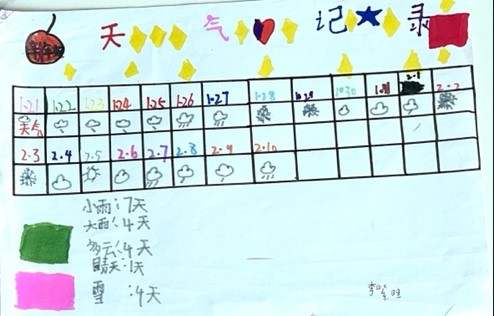 天气记录
1·21 1·22 1·23 1·24 1·25 1·26 1·27 1·28 1·29 1·30 1·31 2·1 2·2
天气
2·3 2·4 2·5 2·6 2·7 2·8 2·9 2·10
小雨:7天
大雨:4天
多云:4天
晴天:1天
雪:4天